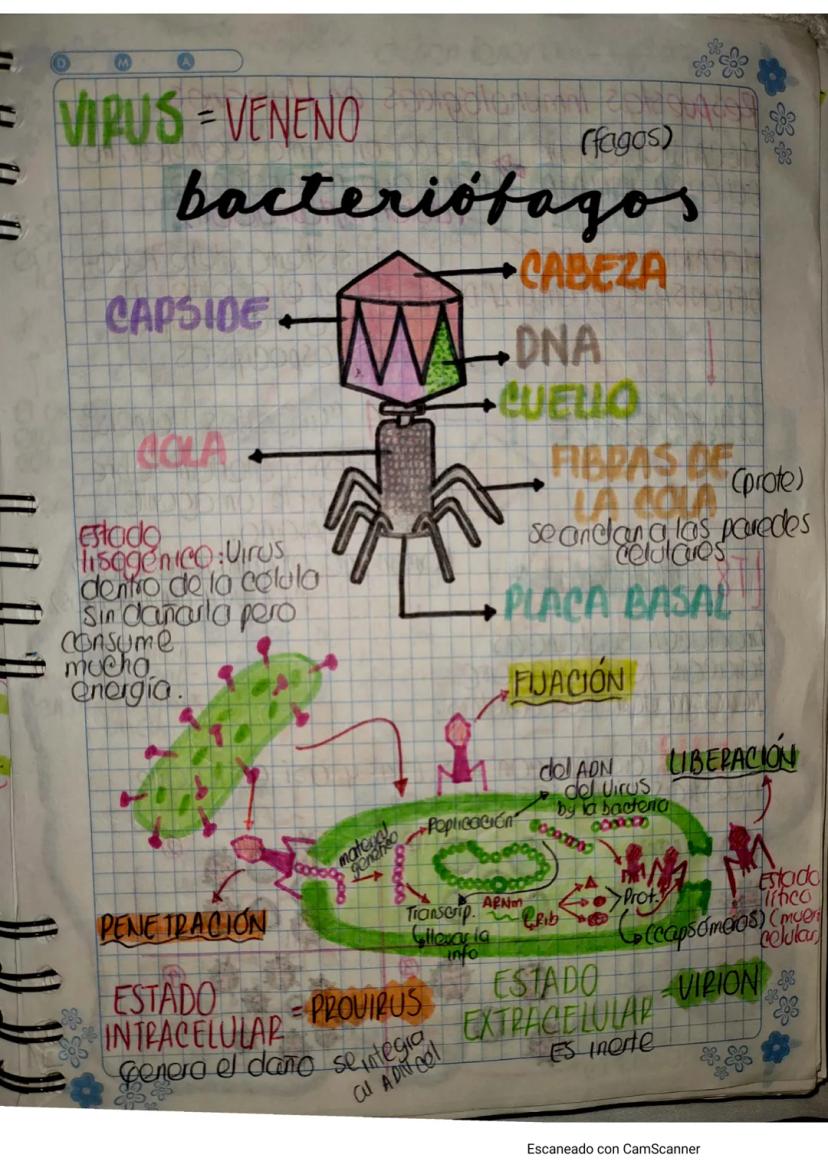 D M A
VIRUS = VENENO
(fagos)
bacteriófagos
CABEZA
CAPSIDE
DNA
CUELLO
COLA
FIBRAS DE
LA COLA (prote)
se anclan a las paredes
celulares
PLACA BASAL
Estado
lisogénico: Virus
dentro de la célula
sin dañarla pero
consume
mucha
energía.
FIJACIÓN
LIBERACIÓN
del ADN
del virus
by la bacteria
Replicación
material
genético
Transcrip.
llevar la
info
ARNm
Rib
Prot.
(capsómeros)
Estado
lítico
(muer
celular)
PENETRACIÓN
ESTADO
INTRACELULAR = PROVIRUS
genera el daño se integra
al ADN cel
ESTADO
EXTRACELULAR = VIRION
Es inerte
Escaneado con CamScanner